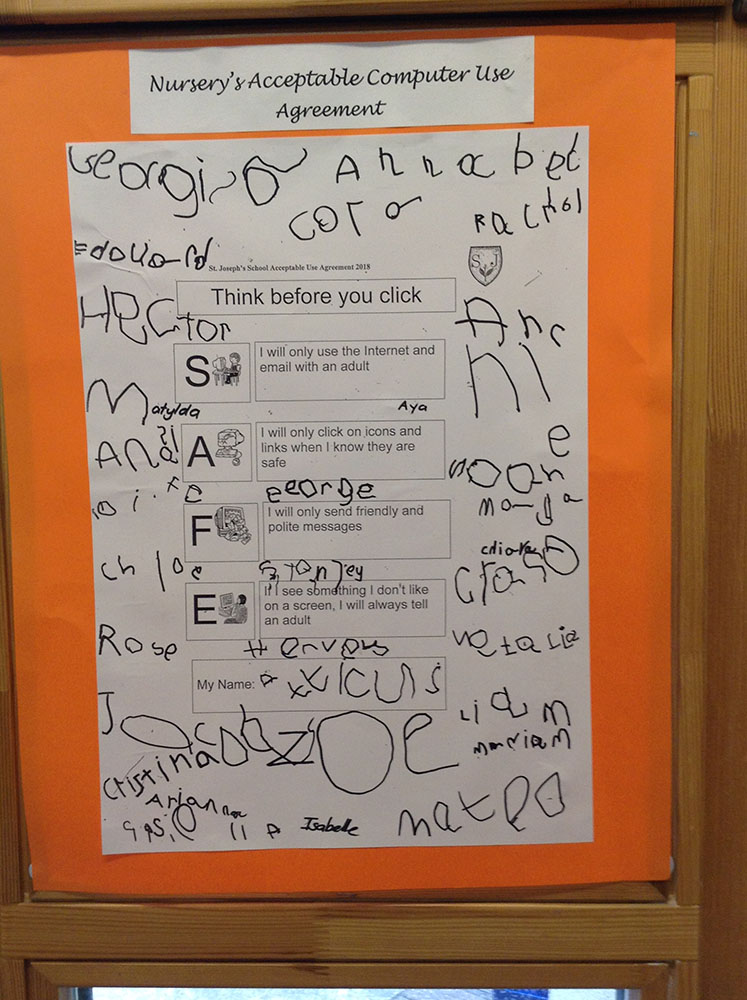 Nursery's Acceptable Computer Use
Agreement
Georgia Annabel
cora Rachel
Edouard
St. Joseph's School Acceptable Use Agreement 2018
S J
Think before you click
Hector
Annie
S
I will only use the Internet and
email with an adult
Matylda
Aya
A
I will only click on icons and
links when I know they are
safe
Noah
george
F
I will only send friendly and
polite messages
chloe
Stanley
E
If I see something I don't like
on a screen, I will always tell
an adult
Rose
My Name:
Jacob
Zoe
Liam
Mariam
Cristina
Arianna
Isabelle
mateo